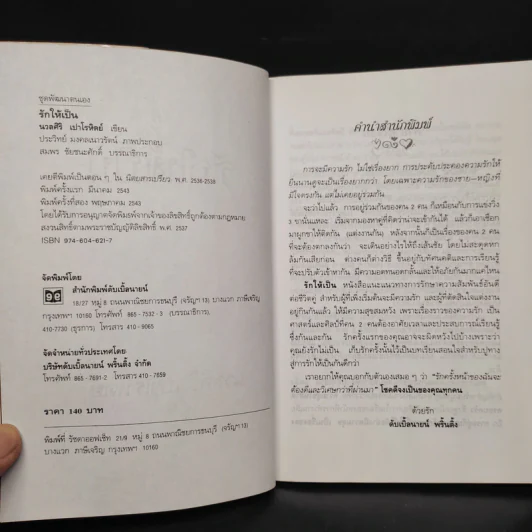 ชุดพัฒนาตนเอง
รักให้เป็น
นวลศิริ เปาโรหิตย์ เขียน
ประวิทย์ มงคลเนาวรัตน์ ภาพประกอบ
สมพร ชัยชนะศักดิ์ บรรณาธิการ
เคยตีพิมพ์เป็นตอน ๆ ใน นิตยสารเปรียว พ.ศ. 2536-2538
พิมพ์ครั้งแรก มีนาคม 2543
พิมพ์ครั้งที่สอง พฤษภาคม 2543
โดยได้รับการอนุญาตจัดพิมพ์จากเจ้าของลิขสิทธิ์ถูกต้องตามกฎหมาย
สงวนลิขสิทธิ์ตามพระราชบัญญัติลิขสิทธิ์ พ.ศ. 2537
ISBN 974-604-621-7
จัดพิมพ์โดย
สำนักพิมพ์ดับเบิ้ลนายน์
18/27 หมู่ 8 ถนนพาณิชยการธนบุรี (จรัญฯ 13) บางแวก ภาษีเจริญ
กรุงเทพฯ 10160 โทรศัพท์ 865-7532-3 (บรรณาธิการ)
410-7730 (ธุรการ) โทรสาร 410-9065
จัดจำหน่ายทั่วประเทศโดย
บริษัทดับเบิ้ลนายน์ พริ้นติ้ง จำกัด
โทรศัพท์ 865-7691-2 โทรสาร 410-7659
ราคา 140 บาท
พิมพ์ที่ รัชดาออฟเซ็ท 21/9 หมู่ 8 ถนนพาณิชยการธนบุรี (จรัญฯ 13)
บางแวก ภาษีเจริญ กรุงเทพฯ 10160
คำนำสำนักพิมพ์
การจะมีความรัก ไม่ใช่เรื่องยาก การประคับประคองความรักให้
ยืนนานดูจะเป็นเรื่องยากกว่า โดยเฉพาะความรักของชาย-หญิงที่
มีใจตรงกัน แต่ไม่เคยอยู่ร่วมกัน
จะว่าไปแล้ว การอยู่ร่วมกันของคน 2 คน ก็เหมือนกับการแข่งวิ่ง
3 ขานั่นแหละ เริ่มจากมองหาคู่ที่คิดว่าน่าจะเข้ากันได้ แล้วก็เอาเชือก
มาผูกขาให้ติดกัน (แต่งงานกัน) หลังจากนั้นก็เป็นเรื่องของคน 2 คน
ที่จะต้องตกลงกันว่า จะเดินอย่างไรให้ถึงเส้นชัย โดยไม่สะดุดหก
ล้มกันเสียก่อน ต่างคนก็ต่างวิธี ขึ้นอยู่กับทัศนคติและการเรียนรู้
ที่จะปรับตัวเข้าหากัน มีความอดทนอดกลั้นและให้อภัยกันมากแค่ไหน
รักให้เป็น หนังสือแนะแนวทางการรักษาความสัมพันธ์อันดี
ต่อชีวิตคู่ สำหรับผู้ที่เพิ่งเริ่มต้นจะมีความรัก และผู้ที่ตัดสินใจแต่งงาน
อยู่กินกันแล้ว ให้มีความสุขสมหวัง เพราะเรื่องราวของความรัก เป็น
ศาสตร์และศิลป์ที่คน 2 คนต้องอาศัยเวลาและประสบการณ์เรียนรู้
ซึ่งกันและกัน รักครั้งแรกของคุณอาจจะผิดหวังไปบ้างเพราะว่า
คุณยังรักไม่เป็น เก็บรักครั้งนั้นไว้เป็นบทเรียนสอนใจสำหรับปูทาง
สู่การรักให้เป็นกันดีกว่า
เราอยากให้คุณบอกกับตัวเองเสมอ ๆ ว่า "รักครั้งหน้าของฉันจะ
ต้องดีและวิเศษกว่าที่ผ่านมา" โชคดีจงเป็นของคุณทุกคน
ด้วยรัก
ดับเบิ้ลนายน์ พริ้นติ้ง